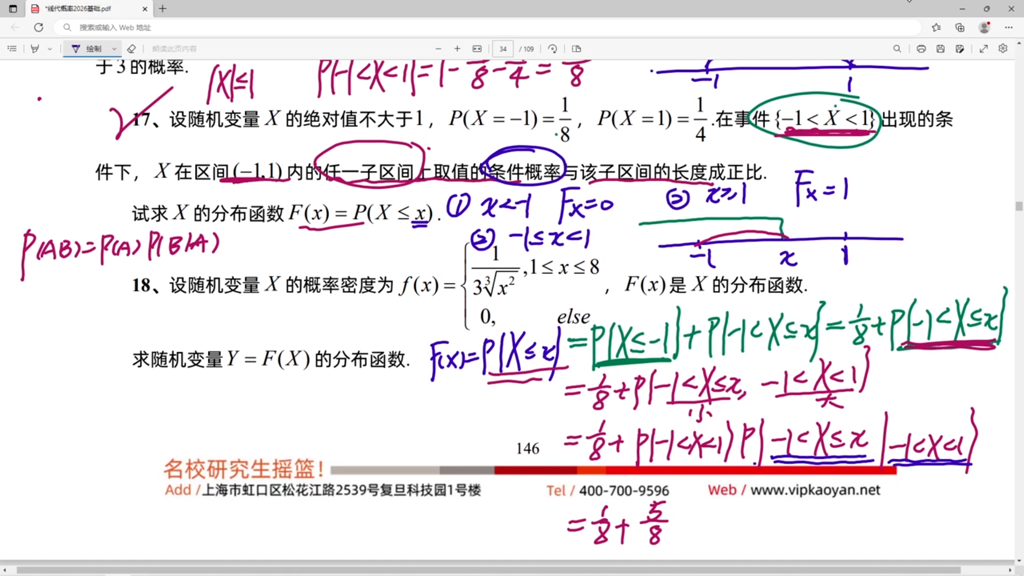 "线代概率2026基础.pdf
搜索或输入 Web 地址
绘制
朗读此页内容
34 / 109
于3的概率.
|X|≤1 P{-1<X<1}=1-1/8-1/4=5/8
-1 1
17、设随机变量 X 的绝对值不大于1，P(X=-1)=1/8，P(X=1)=1/4.在事件{-1<X<1}出现的条
件下，X 在区间(-1,1)内的任一子区间上取值的条件概率与该子区间的长度成正比.
试求 X 的分布函数F(x)=P(X≤x).
① x<-1 Fx=0 ③ x≥1 Fx=1
② -1≤x<1
-1 x 1
P(AB)=P(A)P(B|A)
18、设随机变量 X 的概率密度为 f(x)={1/(3∛x²),1≤x≤8 0, else，F(x)是 X 的分布函数.
求随机变量Y=F(X)的分布函数.
F(x)=P{X≤x}=P{X≤-1}+P{-1<X≤x}=1/8+P{-1<X≤x}
=1/8+P{-1<X≤x, -1<X<1}
小 大
=1/8+P{-1<X<1}P{-1<X≤x|-1<X<1}
146
名校研究生摇篮!
Add /上海市虹口区松花江路2539号复旦科技园1号楼 Tel / 400-700-9596 Web / www.vipkaoyan.net
=1/8+5/8